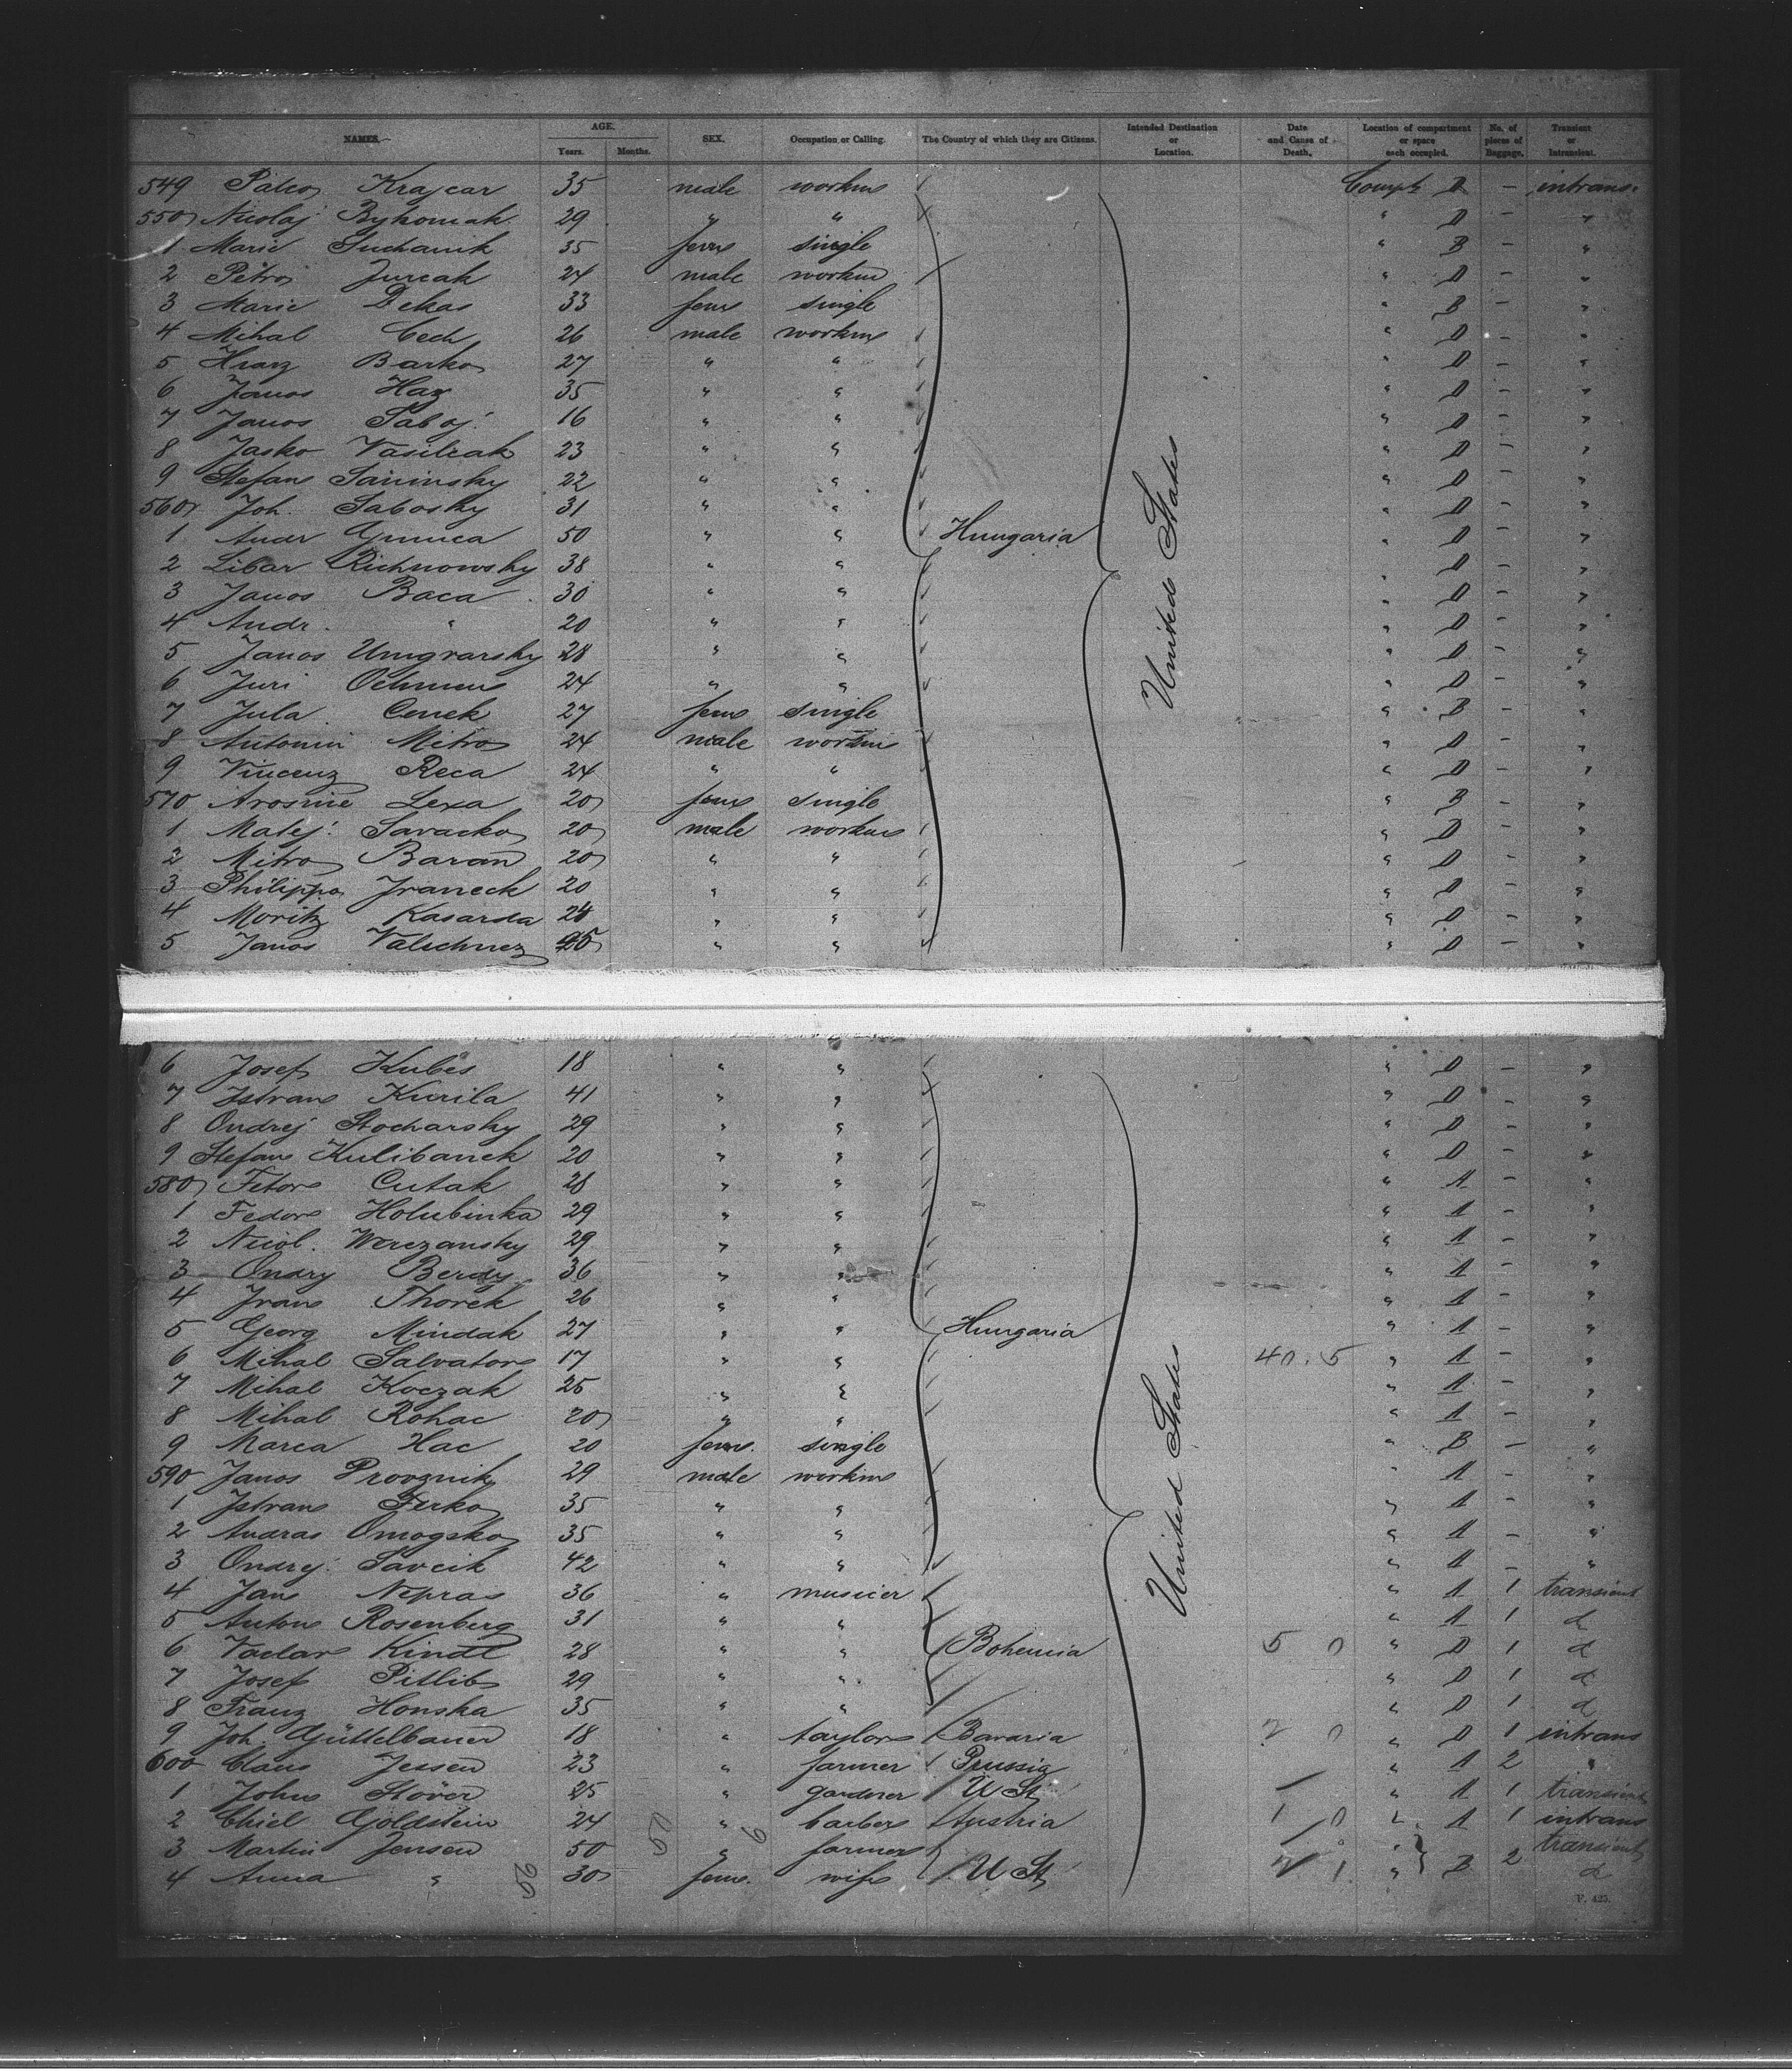 NAMES. AGE. Years. Months. SEX. Occupation or Calling. The Country of which they are Citizens. Intended Destination or Location. Date and Cause of Death. Location of compartment or space each occupied. No. of pieces of Baggage. Transient or Intransient.
549 Krajcar 35 male D – intrans.
550 Nicolaj 29 " " " D – "
1 Marie Suchanik 35 fem single " B – "
2 Petro Jurcak 24 male " D – "
3 Marie Dekas 33 fem single " B – "
4 Mihal Cech 26 male " D – "
5 Barko 27 " " " D – "
6 Janos Haz 35 " " " D – "
7 Janos Saboj 16 " " " D – "
8 Jasko Vasilcak 23 " " " D – "
9 Stefan Saninsky 22 " " " D – "
560 Joh. Sabosky 31 " " " D – "
1 Andr 50 " " Hungaria " D – "
2 Libar Richnowsky 38 " " " D – "
3 Janos Baca 30 " " " D – "
4 Andr. " 20 " " United States " D – "
5 Janos Ungvarsky 28 " " " D – "
6 Juri 24 " " " D – "
7 Jula Cenek 27 fem single " B – "
8 Antonin Mitro 24 male " D – "
9 Vincenz Reca 24 " " " D – "
570 Lexa 20 fem single " B – "
1 Matej Savacko 20 male " D – "
2 Mitro Baran 20 " " " D – "
3 Philippo Franeck 20 " " " D – "
4 Moritz Kasarda 24 " " " D – "
5 Janos " " " D – "
6 Josef Kubis 18 " " " D – "
7 Istvan Kurila 41 " " " D – "
8 Ondrej Stocharsky 29 " " " D – "
9 Stefan Kulibanek 20 " " " D – "
580 Cutak 28 " " " A – "
1 Fedor Holubinka 29 " " " A – "
2 Nicol. Werezansky 29 " " " A – "
3 Ondry Berdy 36 " " " A – "
4 Ivan Thorek 26 " " " A – "
5 Georg Mindak 27 " " Hungaria " A – "
6 Mihal Salvator 17 " " " A – "
7 Mihal Koczak 25 " " " A – "
8 Mihal Rohac 20 " " " A – "
9 Marca Hac 20 fem. single " B – "
590 Janos Provznik 29 male " A – "
1 Istvan Ferko 35 " " United States " A – "
2 Andras Omogsko 35 " " " A – "
3 Ondrej Savcik 42 " " " A – "
4 Jan Nepras 36 " musicer " A 1 transient
5 Anton Rosenberg 31 " " " A 1 d
6 Vaclav Kindl 28 " " Bohemia 5 0 " D 1 d
7 Josef Pitlib 29 " " " D 1 d
8 Franz Honska 35 " " " D 1 d
9 Joh. Güttelbauer 18 " taylor Bavaria " D 1 intrans
600 Claus Jessen 23 " farmer Prussia " A 2 "
1 John Stöver 25 " gardner U St. " A 1 transient
2 Chiel Goldstein 24 " barber Austria 1 0 " A 1 intrans
3 Martin Jensen 50 " farmer " transient
4 Anna " 30 fem. wife U St. " B 2 d
F. 425.